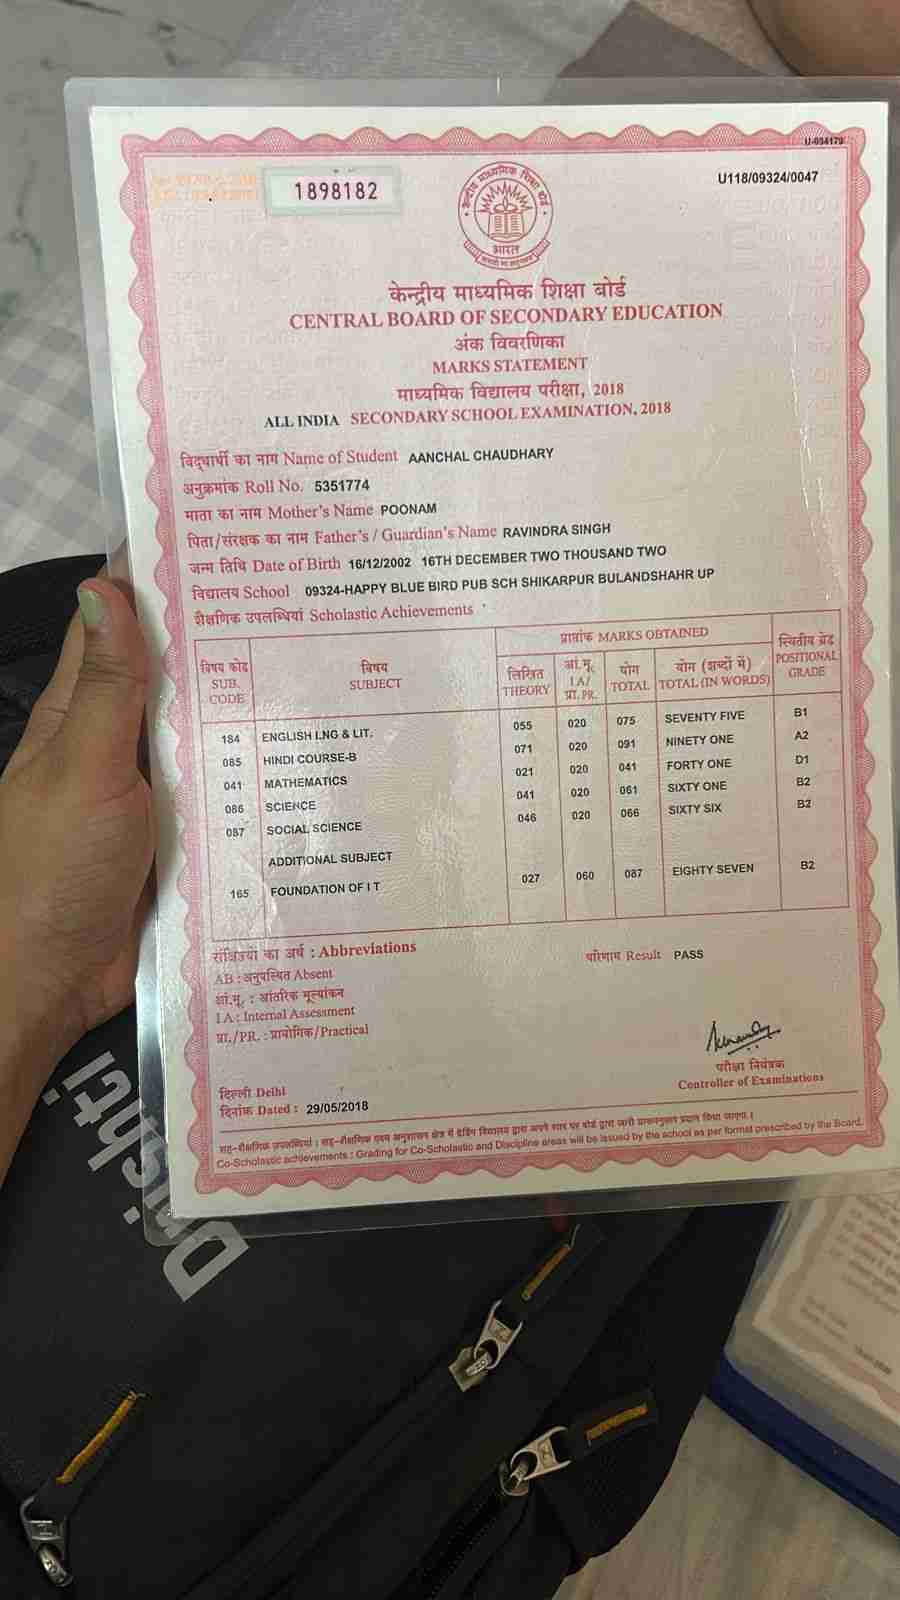 U-094179
1898182
U118/09324/0047
केन्द्रीय माध्यमिक शिक्षा बोर्ड
भारत
केन्द्रीय माध्यमिक शिक्षा बोर्ड
CENTRAL BOARD OF SECONDARY EDUCATION
अंक विवरणिका
MARKS STATEMENT
माध्यमिक विद्यालय परीक्षा, 2018
ALL INDIA SECONDARY SCHOOL EXAMINATION, 2018
विद्यार्थी का नाम Name of Student AANCHAL CHAUDHARY
अनुक्रमांक Roll No. 5351774
माता का नाम Mother's Name POONAM
पिता/संरक्षक का नाम Father's / Guardian's Name RAVINDRA SINGH
जन्म तिथि Date of Birth 16/12/2002 16TH DECEMBER TWO THOUSAND TWO
विद्यालय School 09324-HAPPY BLUE BIRD PUB SCH SHIKARPUR BULANDSHAHR UP
शैक्षणिक उपलब्धियां Scholastic Achievements
विषय कोड SUB. CODE
विषय SUBJECT
प्राप्तांक MARKS OBTAINED
लिखित THEORY
आं.मू. I A/ प्रा. PR.
योग TOTAL
योग (शब्दों में) TOTAL (IN WORDS)
स्थितीय ग्रेड POSITIONAL GRADE
184 ENGLISH LNG & LIT. 055 020 075 SEVENTY FIVE B1
085 HINDI COURSE-B 071 020 091 NINETY ONE A2
041 MATHEMATICS 021 020 041 FORTY ONE D1
086 SCIENCE 041 020 061 SIXTY ONE B2
087 SOCIAL SCIENCE 046 020 066 SIXTY SIX B2
ADDITIONAL SUBJECT
165 FOUNDATION OF I T 027 060 087 EIGHTY SEVEN B2
संक्षिप्तियों का अर्थ : Abbreviations
परिणाम Result PASS
AB : अनुपस्थित Absent
आं.मू. : आंतरिक मूल्यांकन
I A : Internal Assessment
प्रा./PR. : प्रायोगिक/Practical
परीक्षा नियंत्रक
Controller of Examinations
दिल्ली Delhi
दिनांक Dated : 29/05/2018
सह-शैक्षणिक उपलब्धियां : सह-शैक्षणिक एवम अनुशासन क्षेत्र में ग्रेडिंग विद्यालय द्वारा अपने स्तर पर बोर्ड द्वारा जारी प्रारूपनुसार प्रदान किया जाएगा।
Co-Scholastic achievements : Grading for Co-Scholastic and Discipline areas will be issued by the school as per format prescribed by the Board.
Drishti